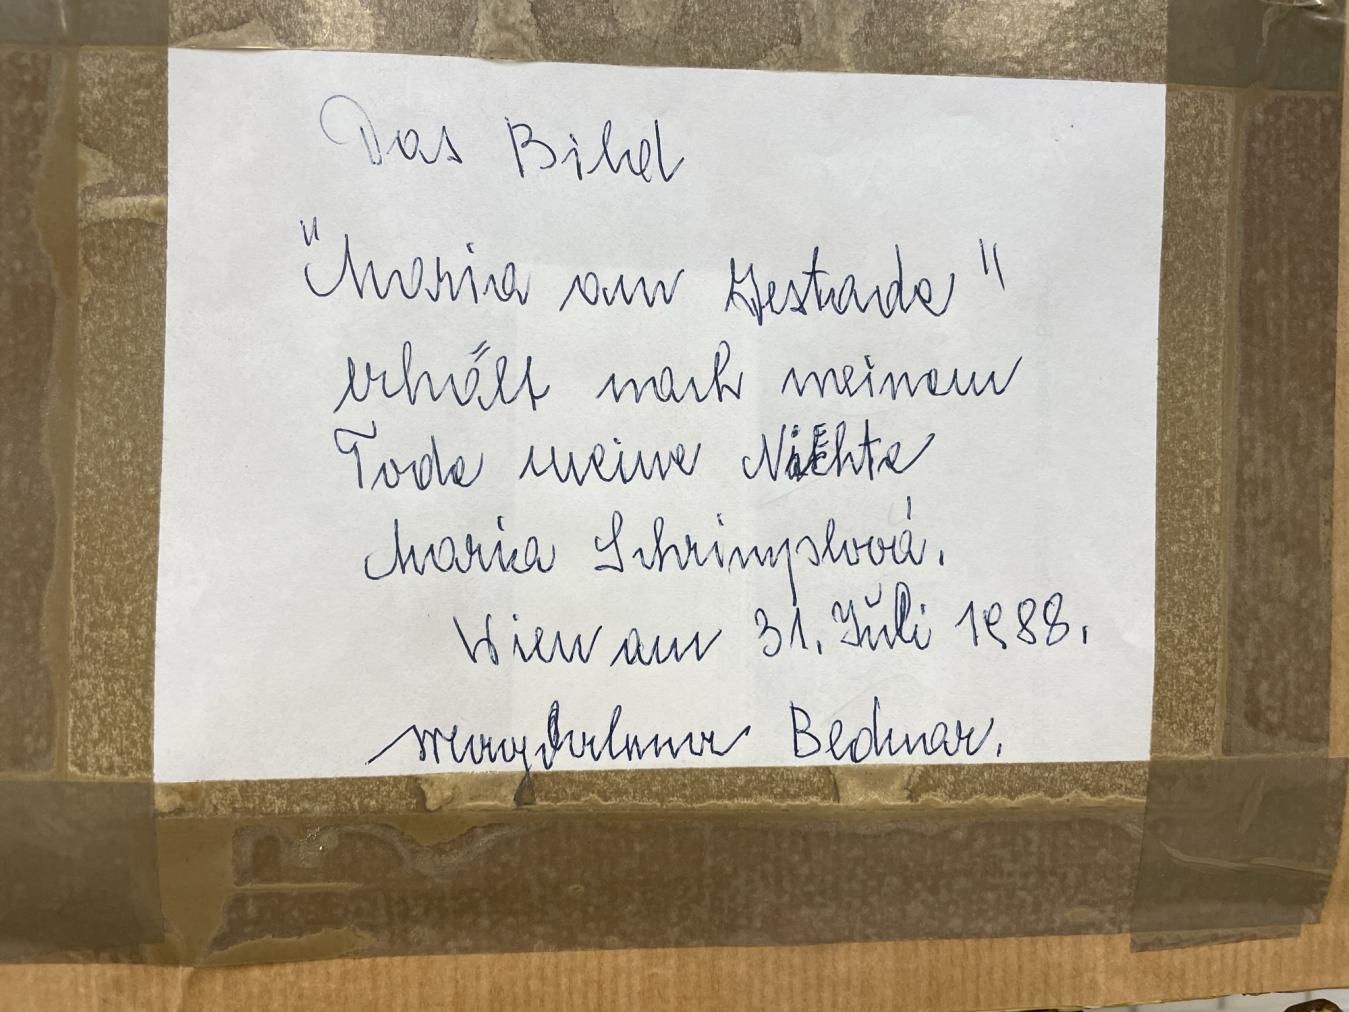 Das Bild
"Maria am Gestade"
erhält nach meinem
Tode meine Nichte
Maria Schrimpslová.
Wien am 31. Juli 1988.
Magdalena Bednar.